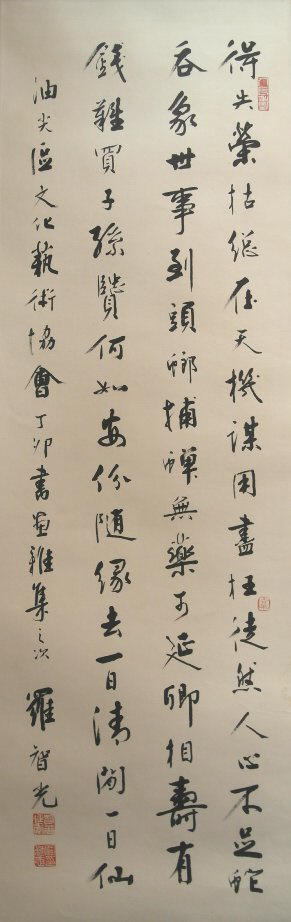 得失榮枯總在天機謀用盡枉徒然人心不足蛇
吞象世事到頭螂捕蟬無藥可延卿相壽有
錢難買子孫賢何如安份隨緣去一日清閒一日仙
油尖區文化藝術協會丁卯書畫雅集之次 羅智光